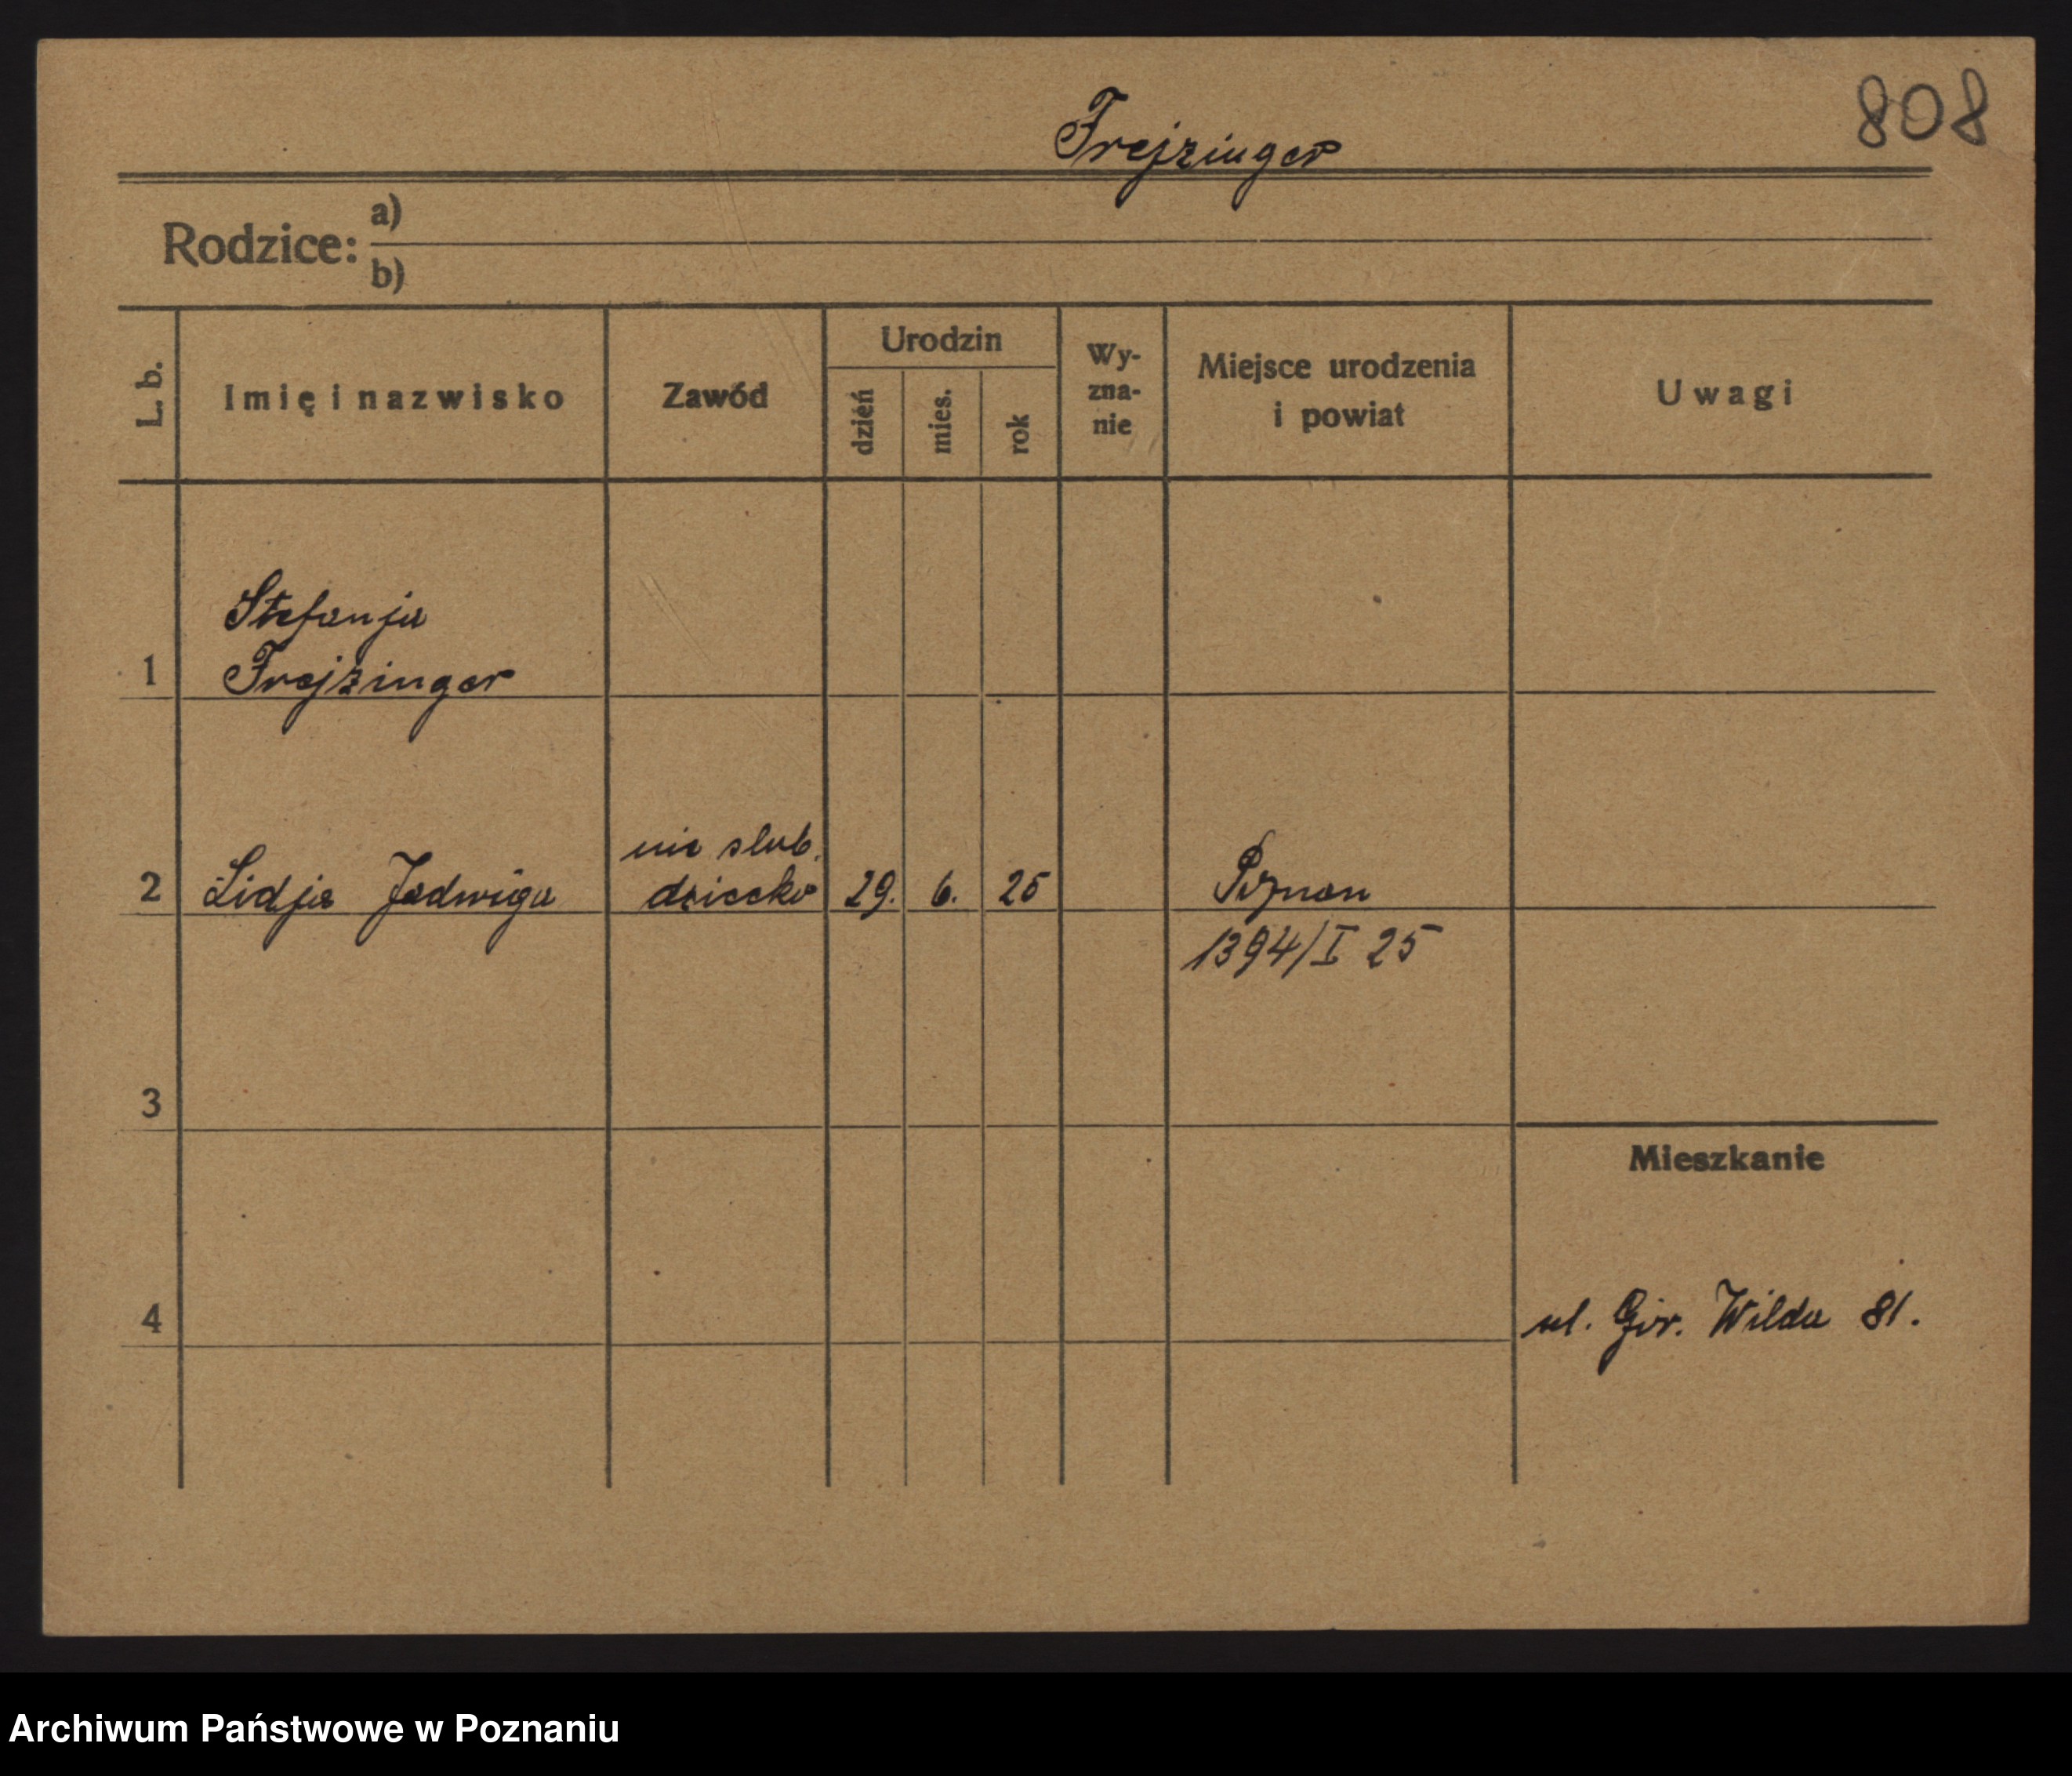 808
Frejzinger
Rodzice:
a)
b)
L. b.
Imię i nazwisko
Zawód
Urodzin
dzień
mies.
rok
Wy-
zna-
nie
Miejsce urodzenia
i powiat
Uwagi
Stefanja
1 Frejzinger
nie slub.
2 Lidja Jadwiga dziecko 29. 6. 25 Poznan
1394/I 25
3
Mieszkanie
4
ul. Gór. Wilda 81.
Archiwum Państwowe w Poznaniu